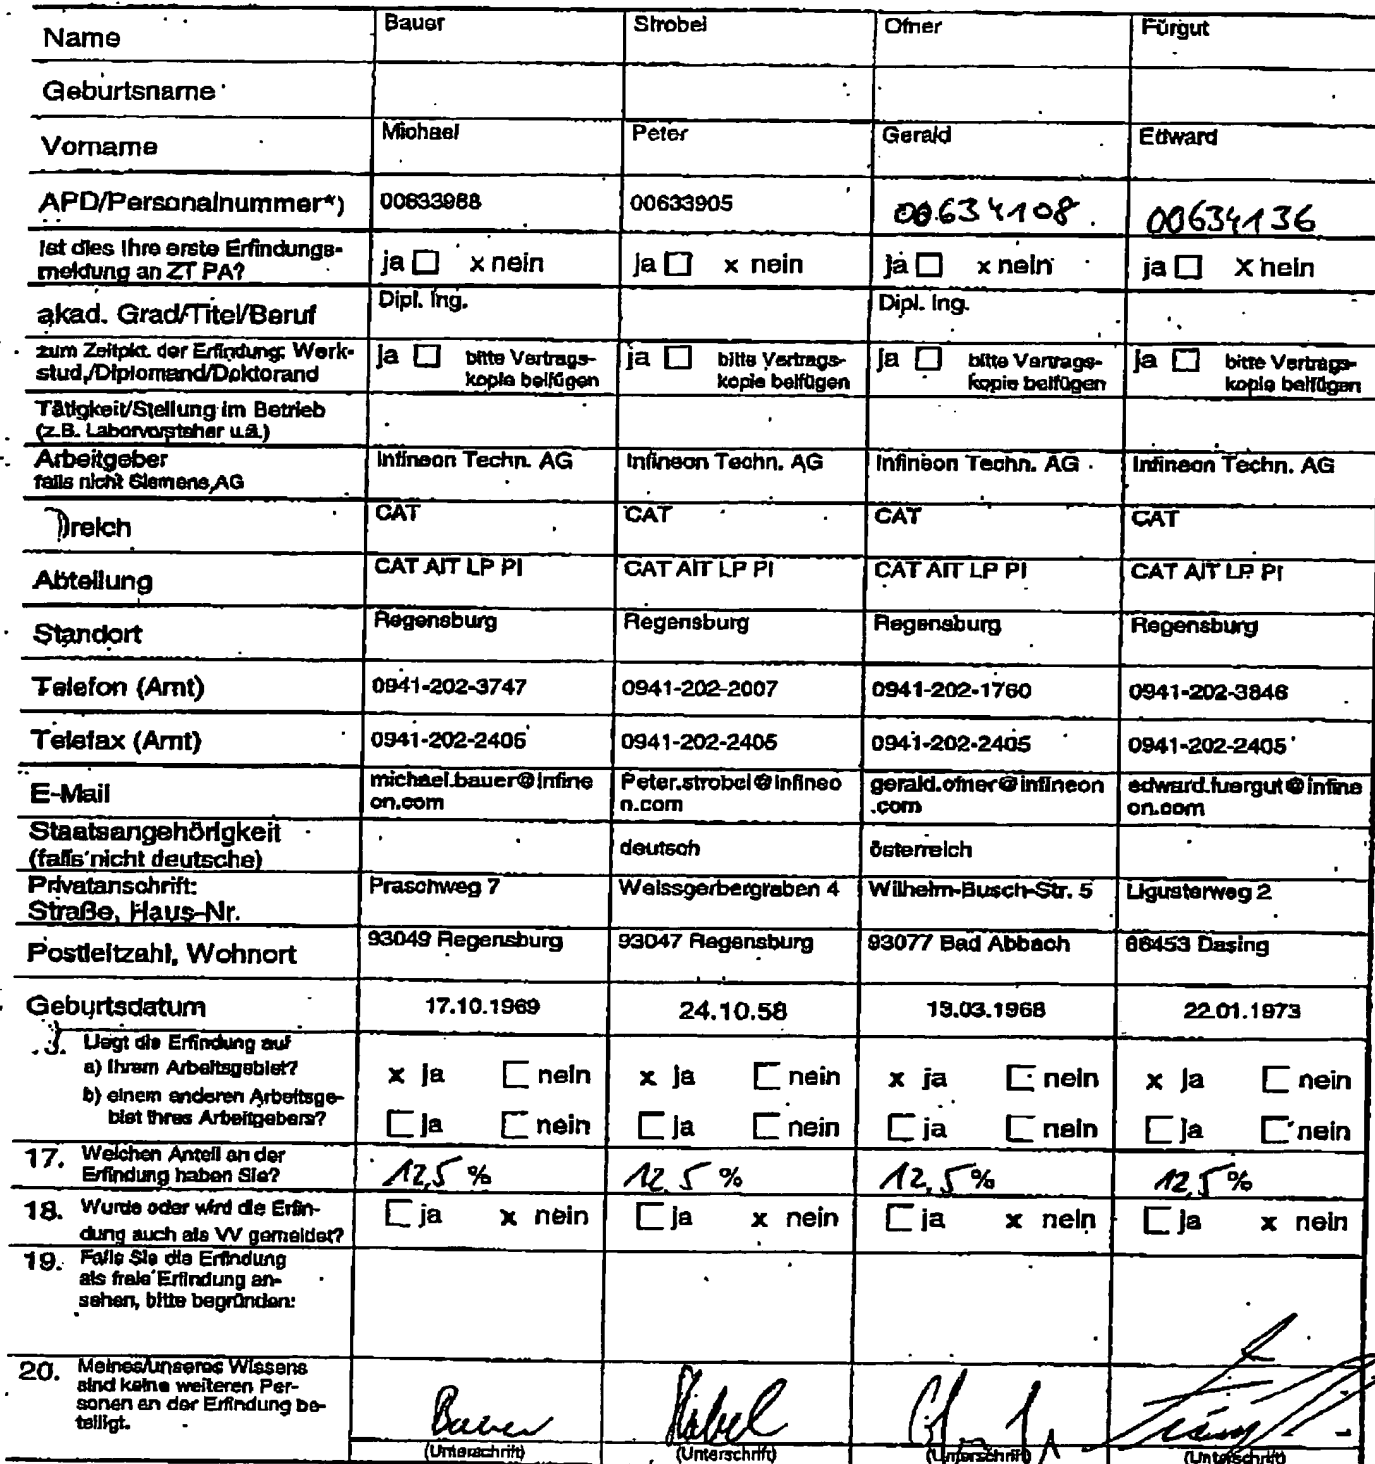 Name Bauer Strobel Ofner Fürgut
Geburtsname
Vorname Michael Peter Gerald Edward
APD/Personalnummer*) 00633988 00633905 00634108 00634136
Ist dies Ihre erste Erfindungs-
meldung an ZT PA? ja ☐ x nein ja ☐ x nein ja ☐ x nein ja ☐ x nein
akad. Grad/Titel/Beruf Dipl. Ing. Dipl. Ing.
zum Zeitpkt. der Erfindung: Werk- ja ☐ bitte Vertrags- ja ☐ bitte Vertrags- ja ☐ bitte Vertrags- ja ☐ bitte Vertrags-
stud./Diplomand/Doktorand kopie beifügen kopie beifügen kopie beifügen kopie beifügen
Tätigkeit/Stellung im Betrieb
(z.B. Laborvorsteher u.ä.)
Arbeitgeber Infineon Techn. AG Infineon Techn. AG Infineon Techn. AG Infineon Techn. AG
falls nicht Siemens AG
reich CAT CAT CAT CAT
Abteilung CAT AIT LP PI CAT AIT LP PI CAT AIT LP PI CAT AIT LP PI
Standort Regensburg Regensburg Regensburg Regensburg
Telefon (Amt) 0941-202-3747 0941-202-2007 0941-202-1760 0941-202-3846
Telefax (Amt) 0941-202-2405 0941-202-2405 0941-202-2405 0941-202-2405
E-Mail michael.bauer@infine Peter.strobel@infineo gerald.ofner@infineon edward.fuergut@infine
on.com n.com .com on.com
Staatsangehörigkeit
(falls nicht deutsche) deutsch österreich
Privatanschrift: Praschweg 7 Weissgerbergraben 4 Wilhelm-Busch-Str. 5 Ligusterweg 2
Straße, Haus-Nr.
Postleitzahl, Wohnort 93049 Regensburg 93047 Regensburg 93077 Bad Abbach 86453 Dasing
Geburtsdatum 17.10.1969 24.10.58 13.03.1968 22.01.1973
3. Liegt die Erfindung auf
a) Ihrem Arbeitsgebiet? x ja ☐ nein x ja ☐ nein x ja ☐ nein x ja ☐ nein
b) einem anderen Arbeitsge-
biet Ihres Arbeitgebers? ☐ ja ☐ nein ☐ ja ☐ nein ☐ ja ☐ nein ☐ ja ☐ nein
17. Welchen Anteil an der
Erfindung haben Sie? 12,5 % 12,5 % 12,5 % 12,5 %
18. Wurde oder wird die Erfin- ☐ ja x nein ☐ ja x nein ☐ ja x nein ☐ ja x nein
dung auch als VV gemeldet?
19. Falls Sie die Erfindung
als freie Erfindung an-
sehen, bitte begründen:
20. Meines/unseres Wissens
sind keine weiteren Per-
sonen an der Erfindung be-
teiligt. Bauer Strobel
(Unterschrift) (Unterschrift) (Unterschrift) (Unterschrift)